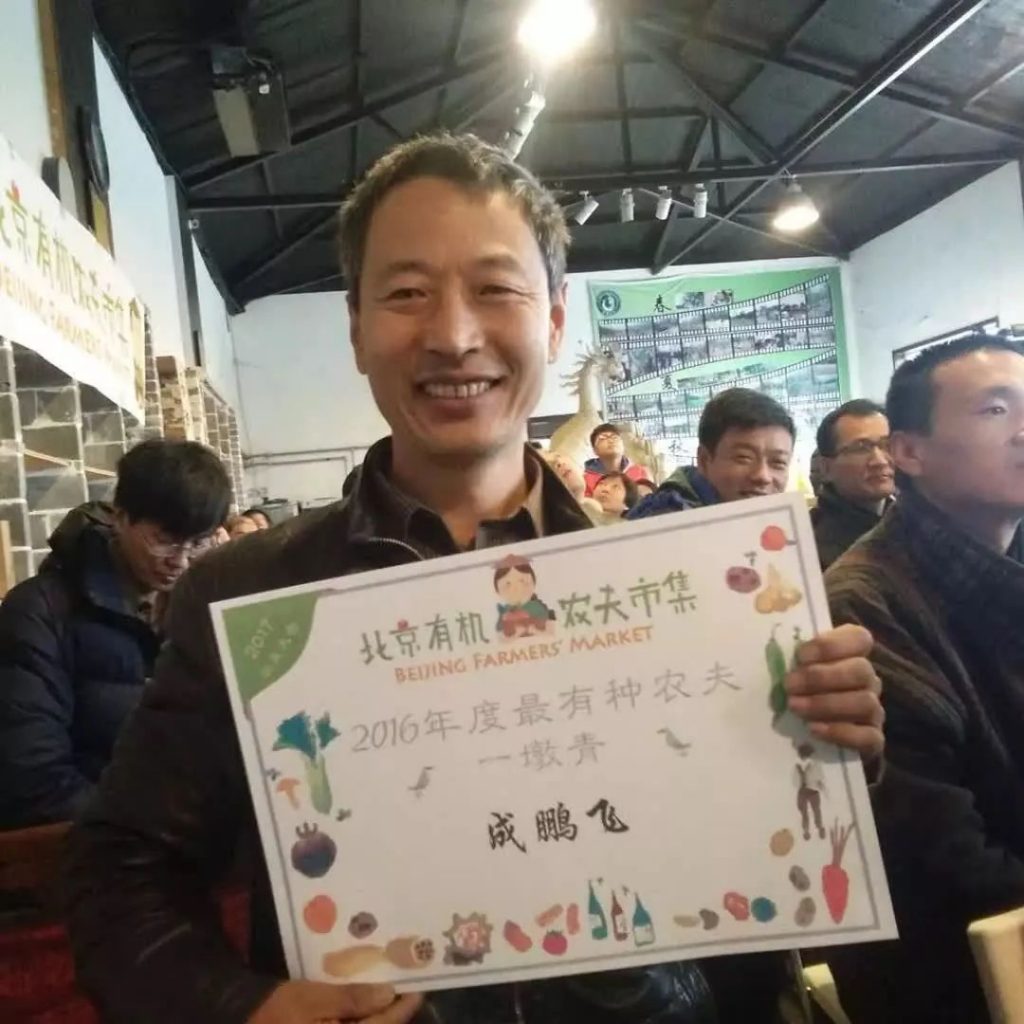 北京有机农夫市集
BEIJING FARMERS' MARKET
春
夏
2017
北京有机农夫市集
BEIJING FARMERS' MARKET
2016年度最有种农夫
一墩青
成鹏飞